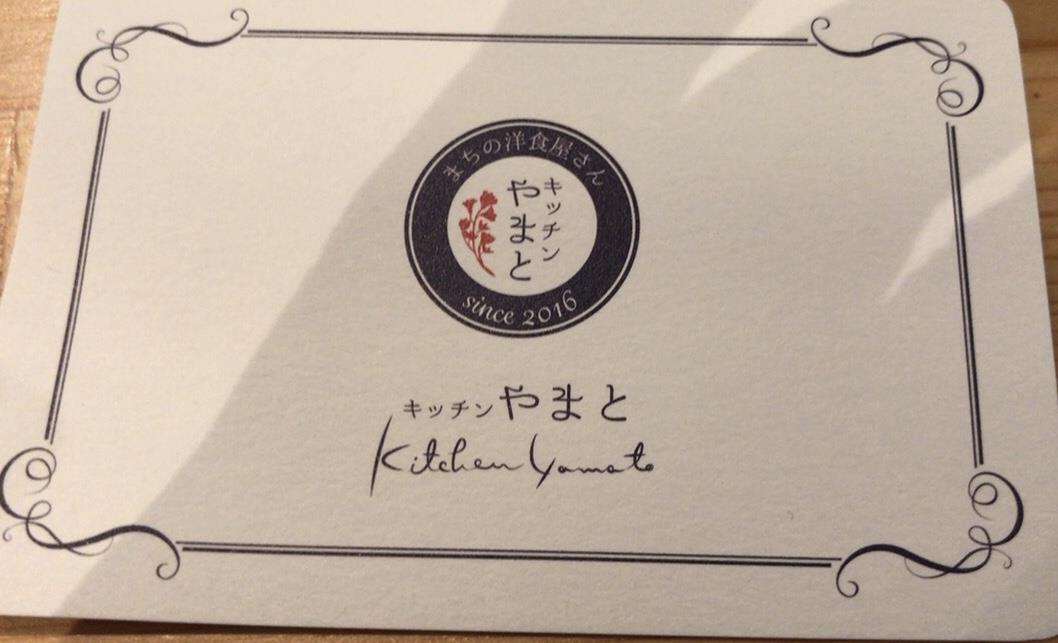 まちの洋食屋さん
キッチン
やまと
since 2016
キッチンやまと
Kitchen Yamato